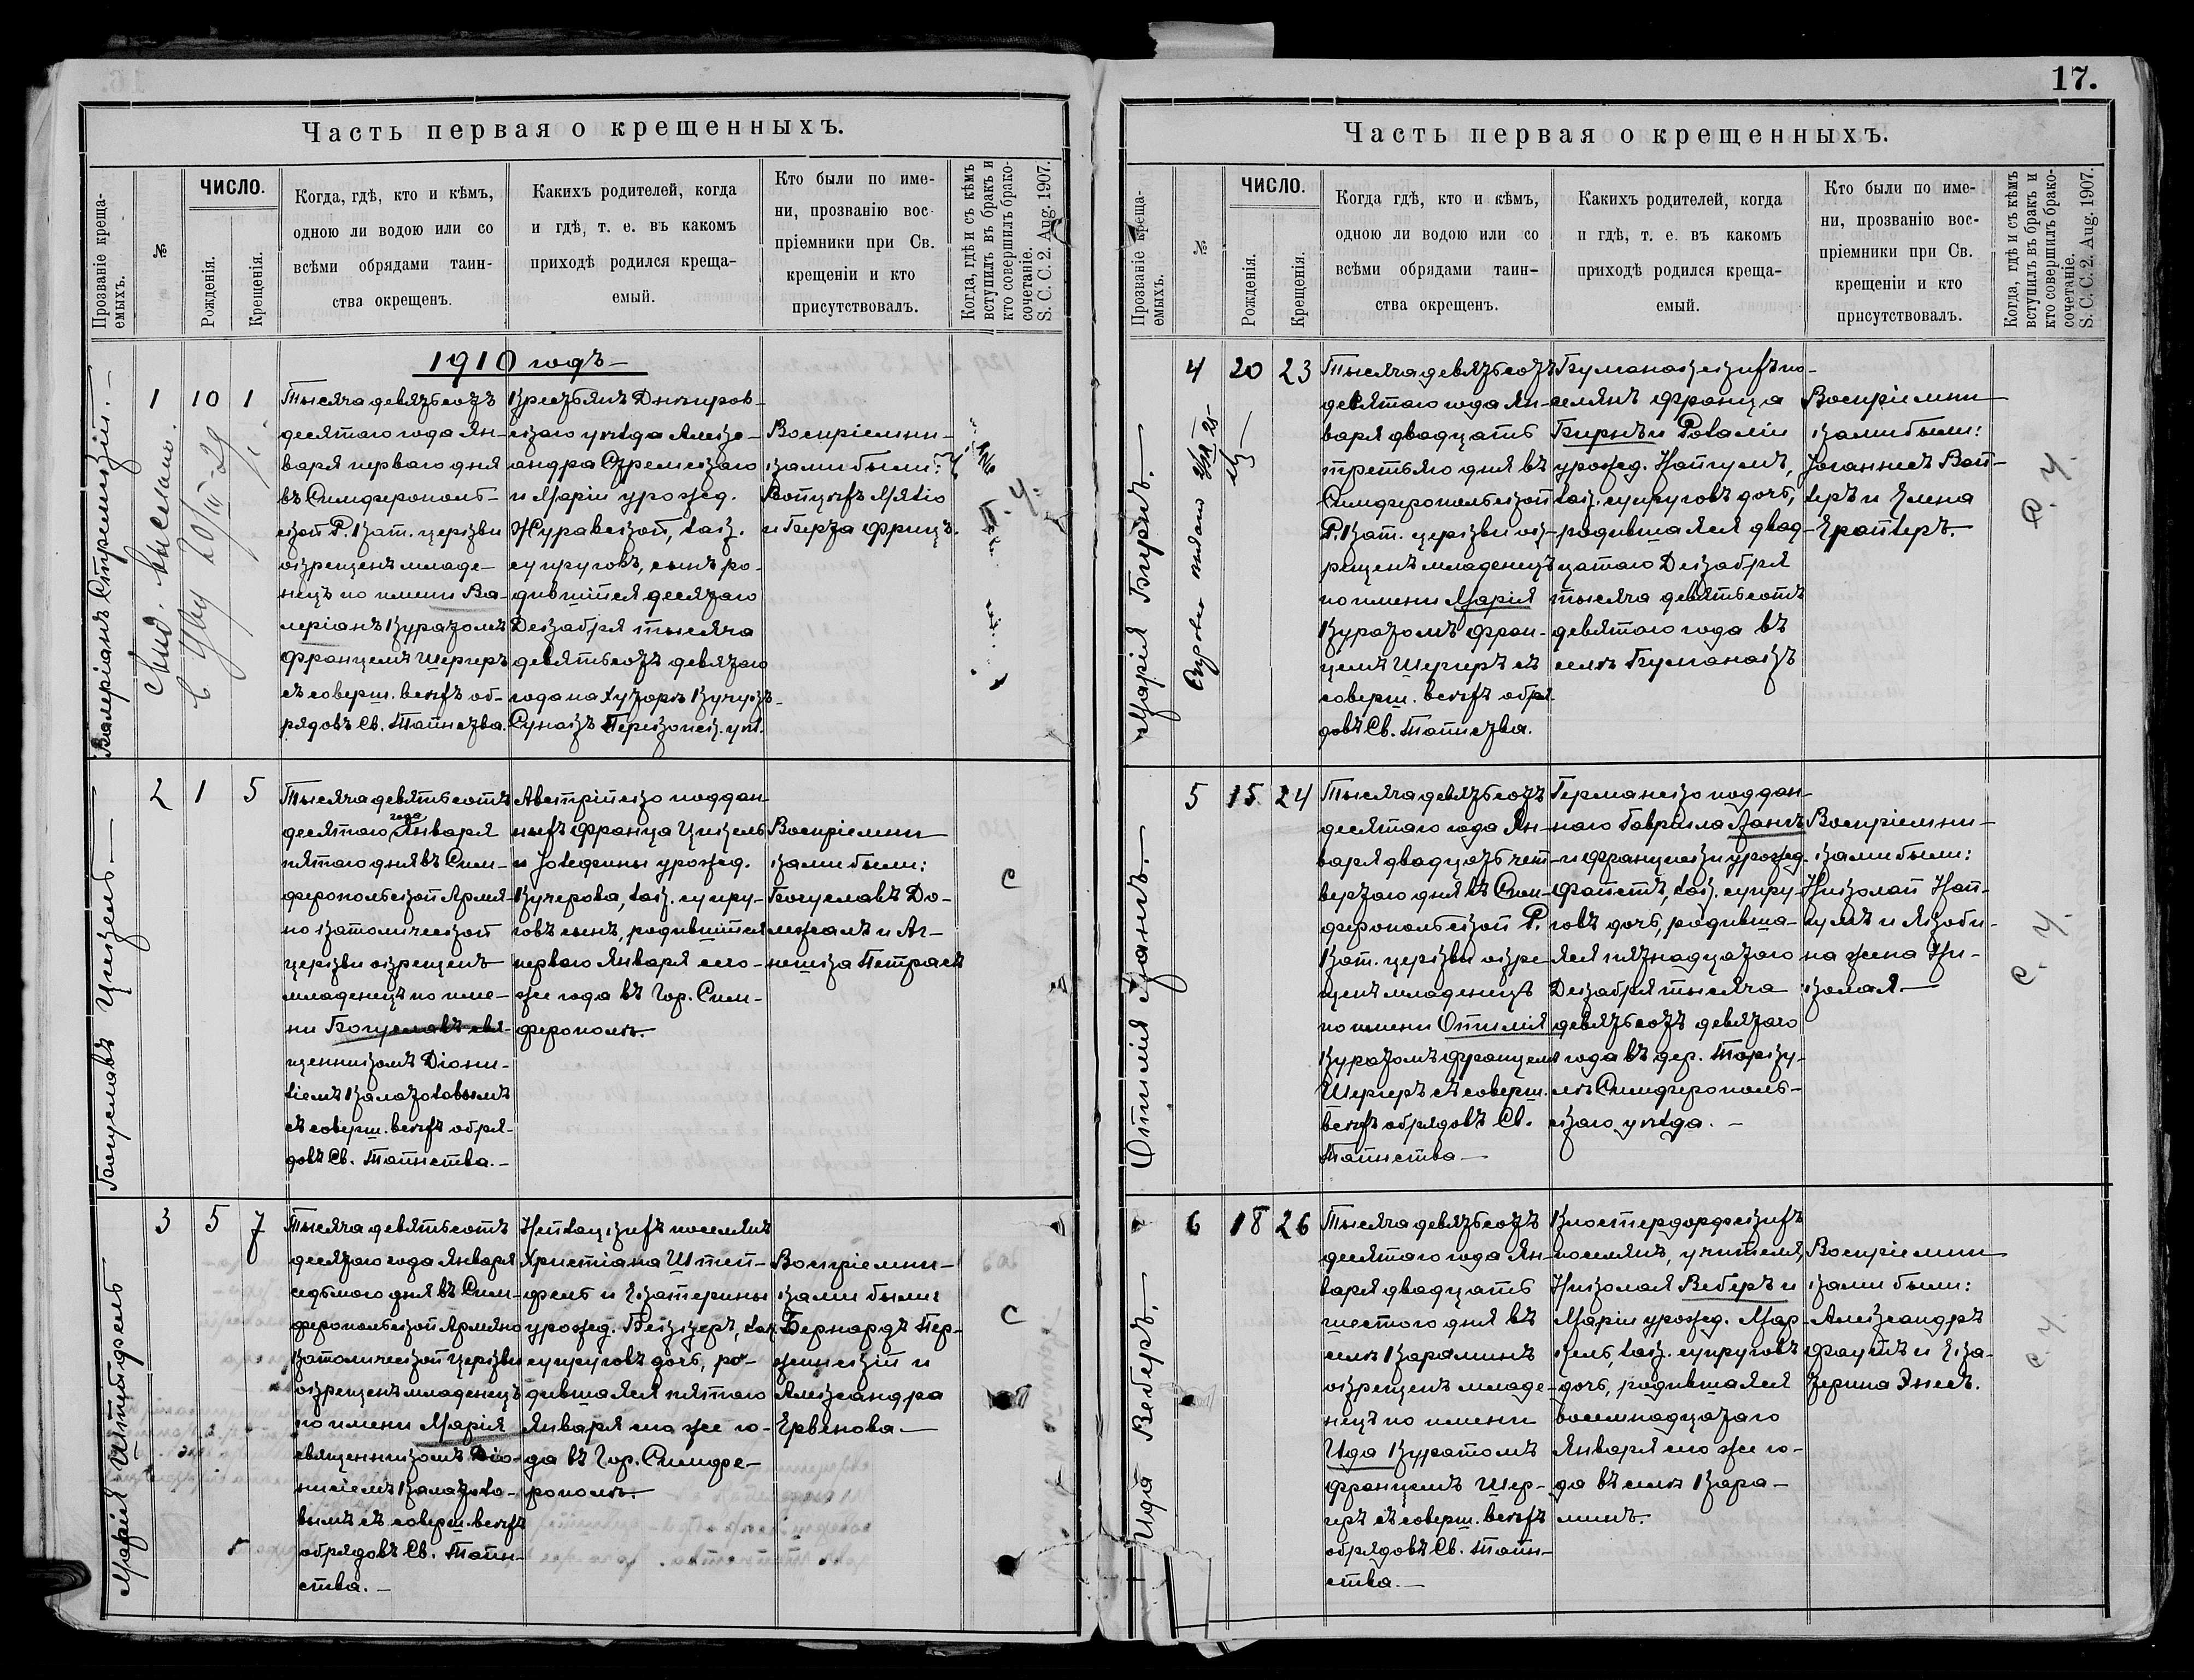 Часть первая о крещенныхъ.
Прозваніе креща-
емыхъ.
№
ЧИСЛО.
Рожденія.
Крещенія.
Когда, гдѣ, кто и кѣмъ,
одною ли водою или со
всѣми обрядами таин-
ства окрещенъ.
Какихъ родителей, когда
и гдѣ, т. е. въ какомъ
приходѣ родился креща-
емый.
Кто были по име-
ни, прозванію вос-
пріемники при Св.
крещеніи и кто
присутствовалъ.
Когда, гдѣ и съ кѣмъ
вступилъ въ бракъ и
кто совершилъ брако-
сочетаніе.
S. C. C. 2. Aug. 1907.
1910 годъ
Валеріанъ Стремскій.
1
10
1
Тысяча девятьсотъ
десятаго года Ян-
варя перваго дня
въ Симферополь-
ской Р. Кат. церкви
окрещенъ младе-
нецъ по имени Ва-
леріанъ Куратомъ
Францемъ Шергеръ
съ соверш. всѣхъ об-
рядовъ Св. Таинства.
Крестьянъ Днѣпров-
скаго уѣзда Алекс-
андра Стремскаго
и Маріи урожд.
Журавской, зак.
супруговъ, сынъ ро-
дившійся десятаго
Декабря тысяча
девятьсотъ девятаго
года на хуторѣ Кучукъ-
Сунакъ Перекопск. уѣз.
Воспріемни-
ками были:
и Берта Фрицъ.
Богуславъ Цизель
2
1
5
Тысяча девятьсотъ
десятаго года Января
пятаго дня въ Сим-
феропольской Армя-
но католической
церкви окрещенъ
младенецъ по име-
ни Богуславъ свя-
щенникомъ Діони-
сіемъ Калатозовымъ
съ соверш. всѣхъ обря-
довъ Св. Таинства.
Австрійско поддан-
ныхъ Франца Цизель
и Іозефины урожд.
Кучерова, зак. супру-
говъ сынъ, родившійся
перваго Января сего-
же года въ Гор. Сим-
ферополѣ.
Воспріемни
ками были:
Богуславъ До-
лежалъ и Аг-
нешка Петрасъ
С
Марія Штапфель
3
5
7
Тысяча девятьсотъ
десятаго года Января
седьмого дня въ Сим-
феропольской Армяно
католической церкви
окрещенъ младенецъ
по имени Марія
священникомъ Діо-
нисіемъ Калатозо-
вымъ съ соверш. всѣхъ
обрядовъ Св. Таин-
ства.
Нейзацкихъ поселянъ
Христіана Штеп-
фель и Екатерины
урожд. Беккеръ, зак.
супруговъ дочь, ро-
дившаяся пятаго
Января сего же го-
да въ Гор. Симфе-
рополѣ.
Воспріемни-
ками были:
Бернардъ Пер-
жинскій и
Александра
Ервенова
С
17.
Часть первая о крещенныхъ.
Прозваніе креща-
емыхъ.
№
ЧИСЛО.
Рожденія.
Крещенія.
Когда гдѣ, кто и кѣмъ,
одною ли водою или со
всѣми обрядами таин-
ства окрещенъ.
Какихъ родителей, когда
и гдѣ, т. е. въ какомъ
приходѣ родился креща-
емый.
Кто были по име-
ни, прозванію вос-
пріемники при Св.
крещеніи и кто
присутствовалъ.
Когда, гдѣ и съ кѣмъ
вступилъ въ бракъ и
кто совершилъ брако-
сочетаніе.
S. C. C. 2. Aug. 1907.
Марія Бирнъ.
4
20
23
Тысяча девятьсотъ
девятаго года Ян-
варя двадцать
третьяго дня въ
Симферопольской
Р. Кат. церкви ок-
рещенъ младенецъ
по имени Марія
Куратомъ Фран-
цемъ Шергеръ съ
соверш. всѣхъ обря
довъ Св. Таинства.
Буманакскихъ по-
селянъ Франца
Бирнъ и Розаліи
урожд. Нейгумъ,
зак. супруговъ дочь,
родившаяся двад-
цатаго Декабря
тысяча девятьсотъ
девятаго года въ
селѣ Бумanакъ
Воспріемни
ками были:
Іоганнесъ Вой-
теръ и Елена
Ерайтеръ.
С. У.
Отилія Ланъ.
5
15
24
Тысяча девятьсотъ
десятаго года Ян-
варя двадцать чет-
вертаго дня въ Сим-
феропольской Р.
Кат. церкви окре-
щенъ младенецъ
по имени Отилія
Куратомъ Францемъ
Шергеръ съ соверш.
всѣхъ обрядовъ Св.
Таинства
Германско поддан-
наго Гавріила Ланъ
и Францишки урожд.
Фаистъ, зак. супру-
говъ дочь, родивша-
яся пятнадцатаго
Декабря тысяча
девятьсотъ девятаго
года въ дер. Торку-
лѣ Симферополь-
скаго уѣзда.
Воспріемни-
ками были:
Николай Ней-
гумъ и Якоби-
на жена Ни-
колая
С. У.
Ида Веберъ.
6
18
26
Тысяча девятьсотъ
десятаго года Ян-
варя двадцать
шестого дня въ
селѣ Караминъ
окрещенъ младе-
нецъ по имени
Ида Куратомъ
Францемъ Шер-
геръ съ соверш. всѣхъ
обрядовъ Св. Таин-
ства.
Клостердорфскихъ
поселянъ, учителя,
Николая Веберъ и
Маріи урожд. Мар-
кель, зак. супруговъ
дочь, родившаяся
восемнадцатаго
Января сего же го-
да въ селѣ Кара-
минъ.
Воспріемни
ками были:
Александръ
Фаустъ и Ека-
терина Энесъ.
С. У.